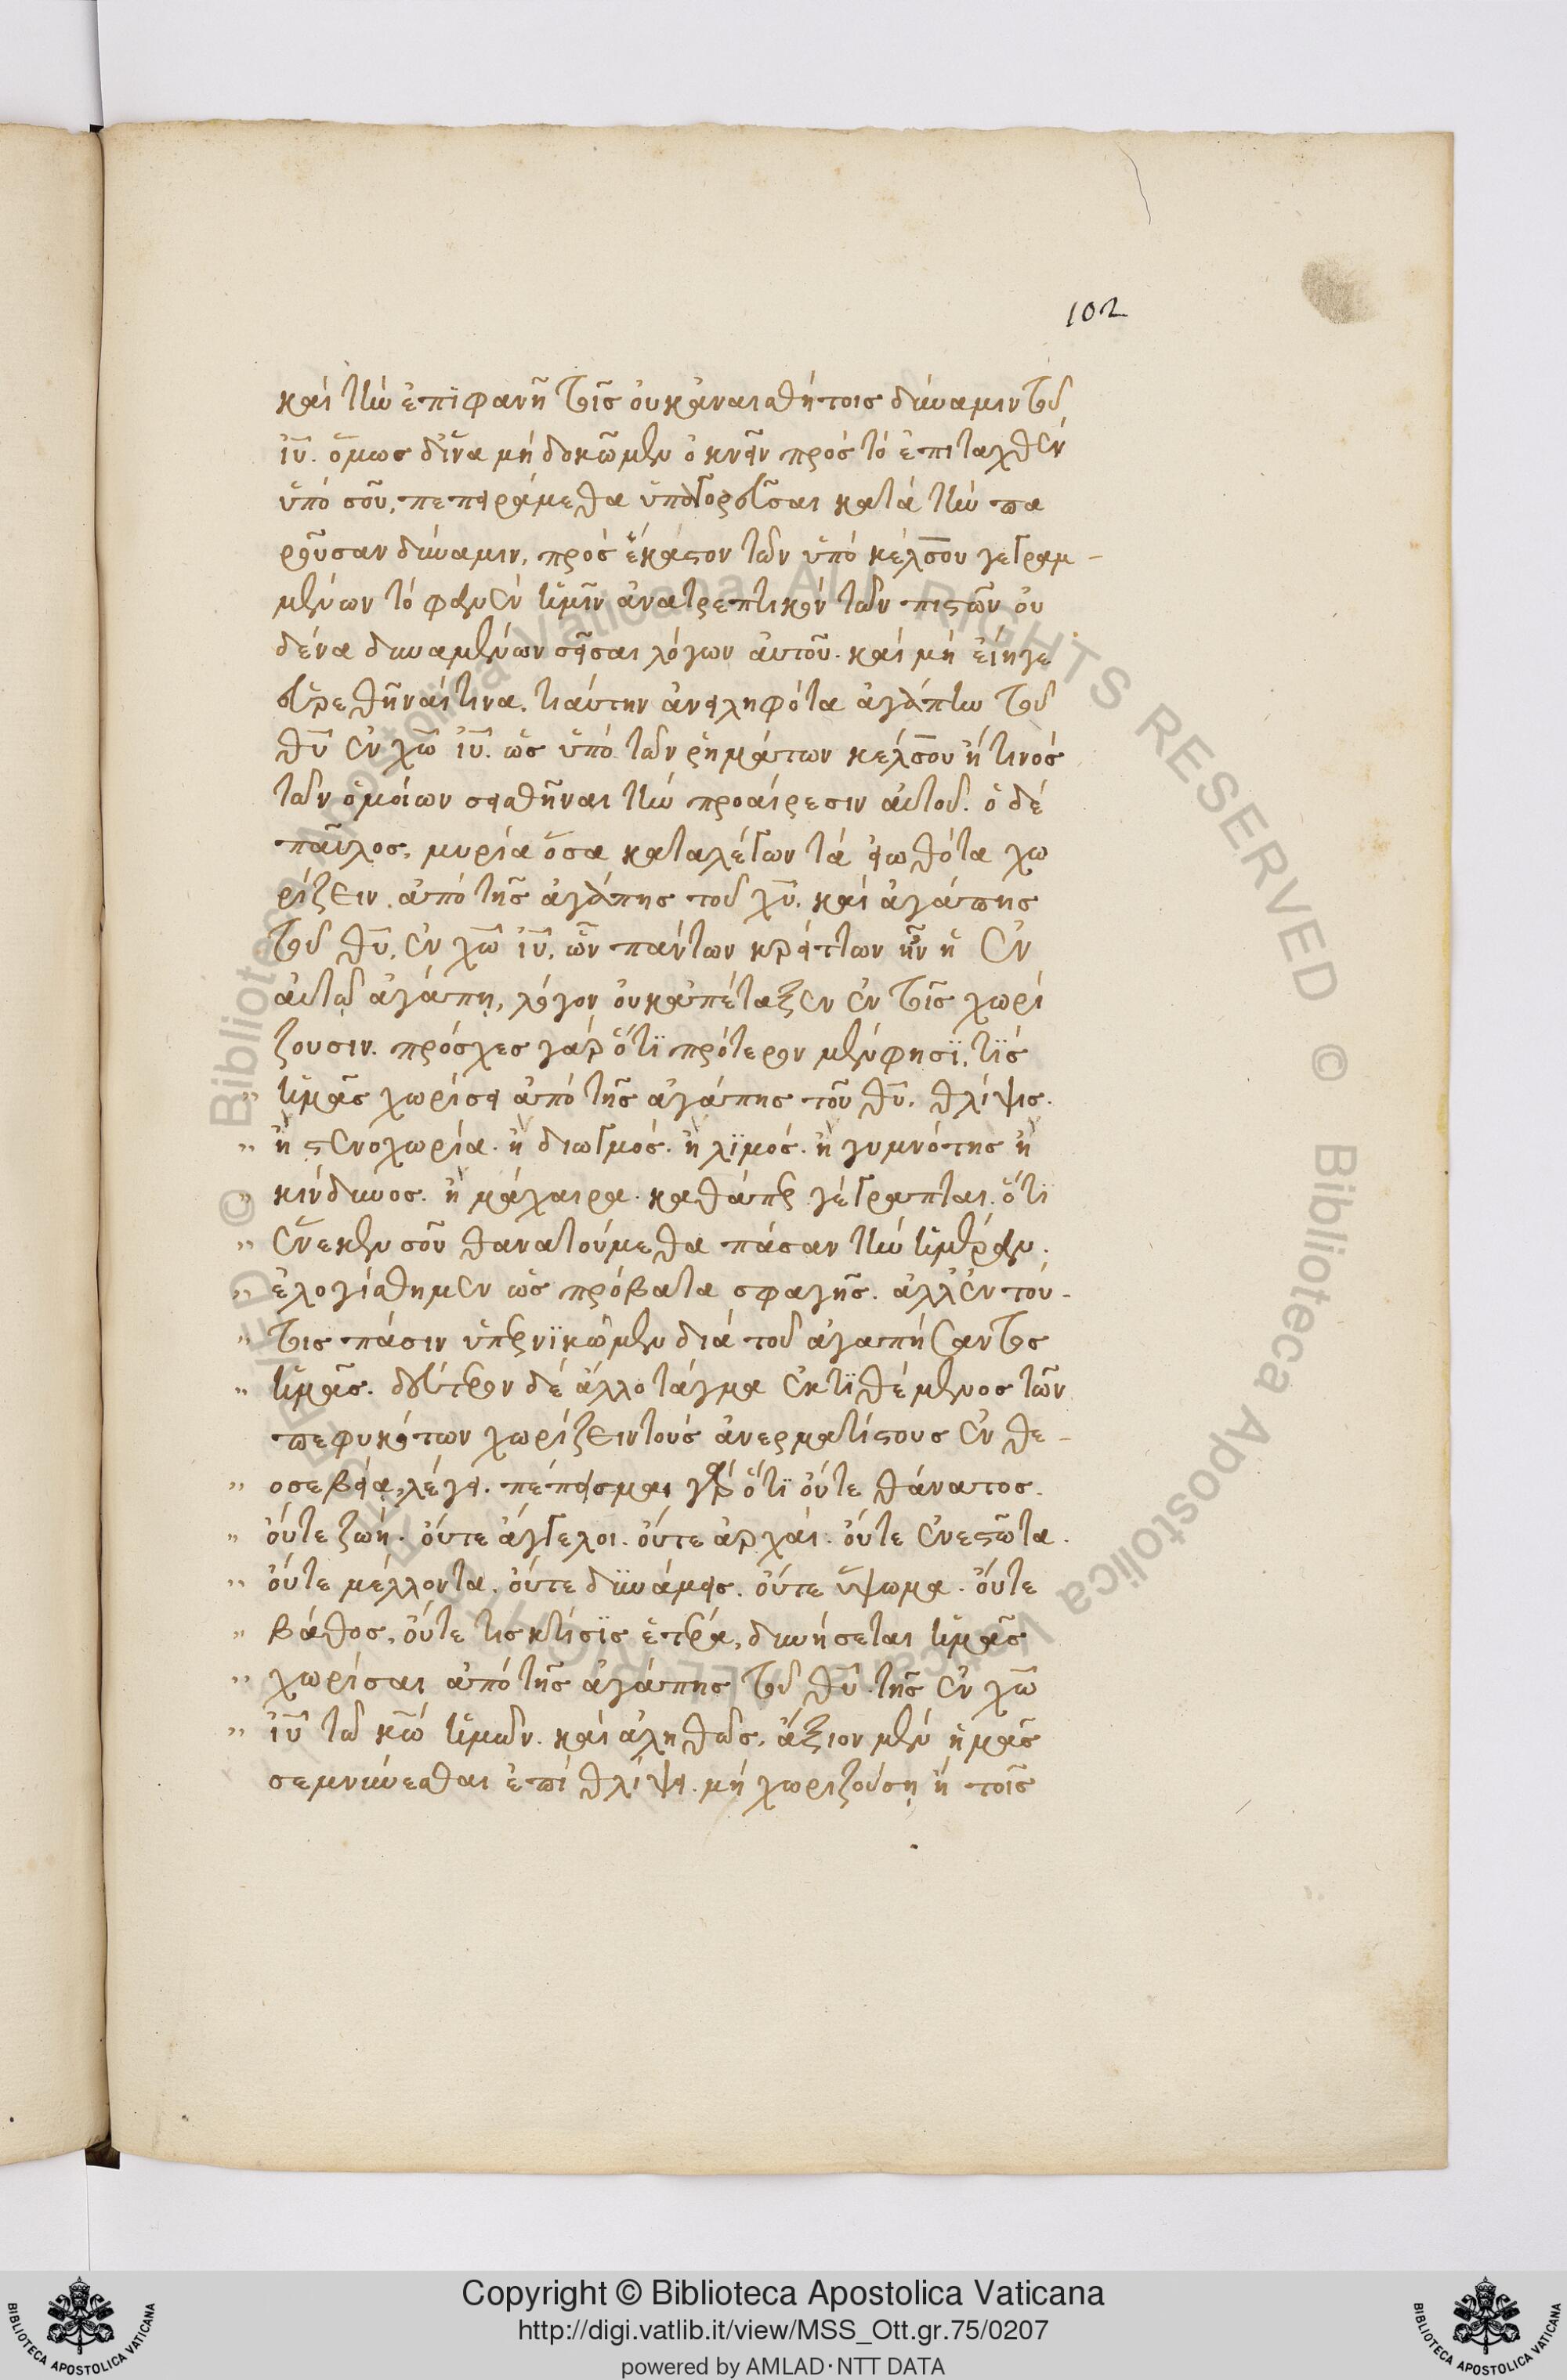 102
καὶ τὴν ἐπιφανῆ τοῖς οὐκ ἀναισθήτοις δύναμιν τοῦ
ἰῦ. ὅμως δ' ἵνα μὴ δοκῶμεν ὀκνεῖν πρὸς τὸ ἐπιταχθὲν
ὑπὸ σοῦ, πεπειράμεθα ὑπαγορεῦσαι κατὰ τὴν πα
ροῦσαν δύναμιν, πρὸς ἕκαστον τῶν ὑπὸ κέλσου γεγραμ-
μένων τὸ φανὲν ἡμῖν ἀνατρεπτικὸν τῶν πιστῶν οὐ
δένα δυναμένων σεῖσαι λόγων αὐτοῦ. καὶ μὴ εἴη γε
εὑρεθῆναί τινα, τιαύτην ἀνειληφότα ἀγάπην τοῦ
θῦ ἐν χῶ ἰῦ. ὡς ὑπὸ τῶν ῥημάτων κέλσου ἤ τινος
τῶν ὁμοίων σεισθῆναι τὴν προαίρεσιν αὐτοῦ. ὁ δὲ
παῦλος, μυρία ὅσα καταλέγων τὰ εἰωθότα χω
ρίζειν ἀπὸ τῆς ἀγάπης τοῦ χῦ, καὶ ἀγάπης
τοῦ θῦ, ἐν χῶ ἰῦ, ὧν πάντων κρείττων ἦν ἡ ἐν
αὐτῷ ἀγάπη, λόγον οὐκ ἀπέταξεν ἐν τοῖς χωρί
ζουσιν. πρόσχες γὰρ ὅτι πρότερον μέν φησι, τίς
" ἡμᾶς χωρίσει ἀπὸ τῆς ἀγάπης τοῦ θῦ, θλίψις.
" ἢ στενοχωρία. ἢ διωγμός. ἢ λιμός. ἢ γυμνότης ἢ
" κίνδυνος. ἢ μάχαιρα. καθάπερ γέγραπται. ὅτι
" ἕνεκεν σοῦ θανατούμεθα πᾶσαν τὴν ἡμέραν.
" ἐλογίσθημεν ὡς πρόβατα σφαγῆς. ἀλλ' ἐν τού-
" τοις πᾶσιν ὑπερνικῶμεν διὰ τοῦ ἀγαπήσαντος
" ἡμᾶς. δεύτερον δὲ ἄλλο τάγμα ἐκτιθέμενος τῶν
πεφυκότων χωρίζειν τοὺς ἀνερματίστους ἐν θε-
" οσεβείᾳ, λέγει. πέπεισμαι γὰρ ὅτι οὔτε θάνατος.
" οὔτε ζωή. οὔτε ἄγγελοι. οὔτε ἀρχαί. οὔτε ἐνεστῶτα.
" οὔτε μέλλοντα. οὔτε δυνάμεις. οὔτε ὕψωμα. οὔτε
" βάθος, οὔτε τις κτίσις ἑτέρα, δυνήσεται ἡμᾶς
" χωρίσαι ἀπὸ τῆς ἀγάπης τοῦ θῦ. τῆς ἐν χῶ
" ἰῦ τῶ κῶ ἡμῶν. καὶ ἀληθῶς, ἄξιον μὲν ἡμᾶς
σεμνύνεσθαι ἐπὶ θλίψει μὴ χωριζούσῃ ἢ τοῖς
Copyright © Biblioteca Apostolica Vaticana
http://digi.vatlib.it/view/MSS_Ott.gr.75/0207
powered by AMLAD·NTT DATA